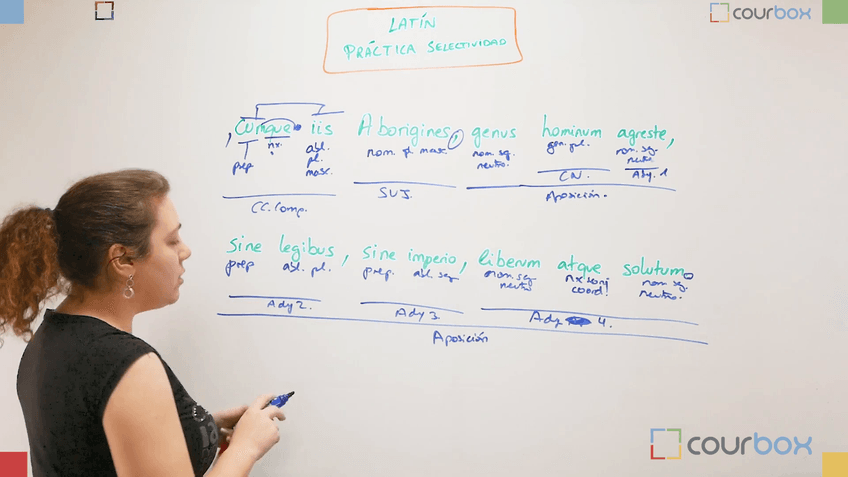 courbox
LATÍN
PRÁCTICA SELECTIVIDAD
, Cumque iis Aborigines, genus hominum agreste,
prep nx. abl. pl. masc. nom. pl. masc. nom. sg. neutro. gen. pl. nom. sg. neutro
CC. Comp. SUJ. CN. Ady. 1
Aposición.
sine legibus, sine imperio, liberum atque solutum
prep abl. pl. prep. abl. sg nom. sg. neutro nx conj coord. nom. sg. neutro.
Ady 2. Ady 3. Ady 4.
Aposición
courbox